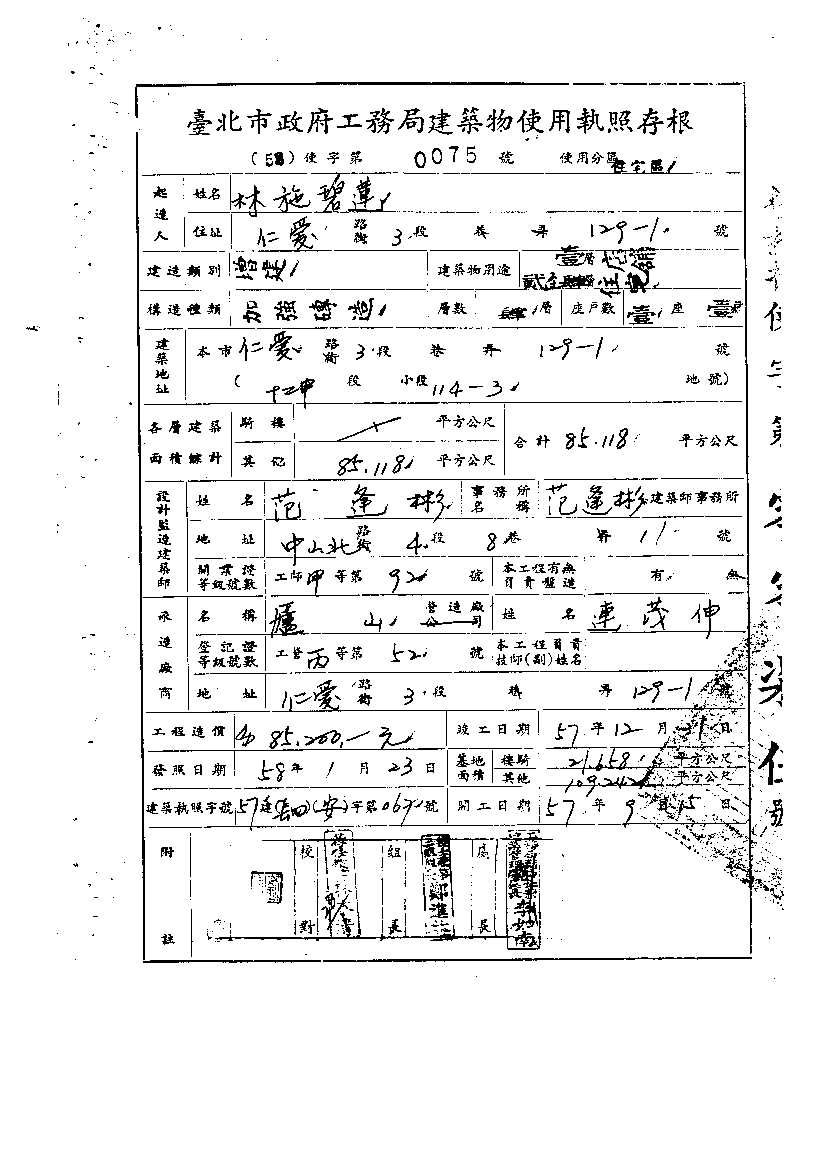 臺北市政府工務局建築物使用執照存根
(58)使字第 0075 號 使用分區 住宅區
起造人 姓名 林施碧蓮
住址 仁愛 路街 3 段 巷 弄 129-1 號
建造類別 增建 建築物用途 壹層店舖 貳至肆層住宅
構造種類 加強磚造 層數 肆層 座戶數 壹座 壹戶
建築地址 本市 仁愛 路街 3 段 巷 弄 129-1 號
( 十二甲 段 小段 114-3 地號)
各層建築面積總計 騎樓 平方公尺 合計 85.118 平方公尺
其他 85.118 平方公尺
設計監造建築師 姓名 范逢彬 事務所名稱 范逢彬建築師事務所
地址 中山北 路街 4 段 8 巷 弄 11 號
開業證等級號數 工師甲等第 92 號 本工程有無負責監造 有 無
承造廠商 名稱 廬山 營造廠公司 姓名 連茂伸
登記證等級號數 工營丙等第 52 號 本工程負責技師(副)姓名
地址 仁愛 路街 3 段 巷 弄 129-1 號
工程造價 85,200.-元 竣工日期 57年12月31日
發照日期 58年1月23日 基地面積 樓騎 21.658 平方公尺
其他 109.242 平方公尺
建築執照字號 57建(安)字第 號 開工日期 57年9月15日
附註 校對 組長 處長
使字第